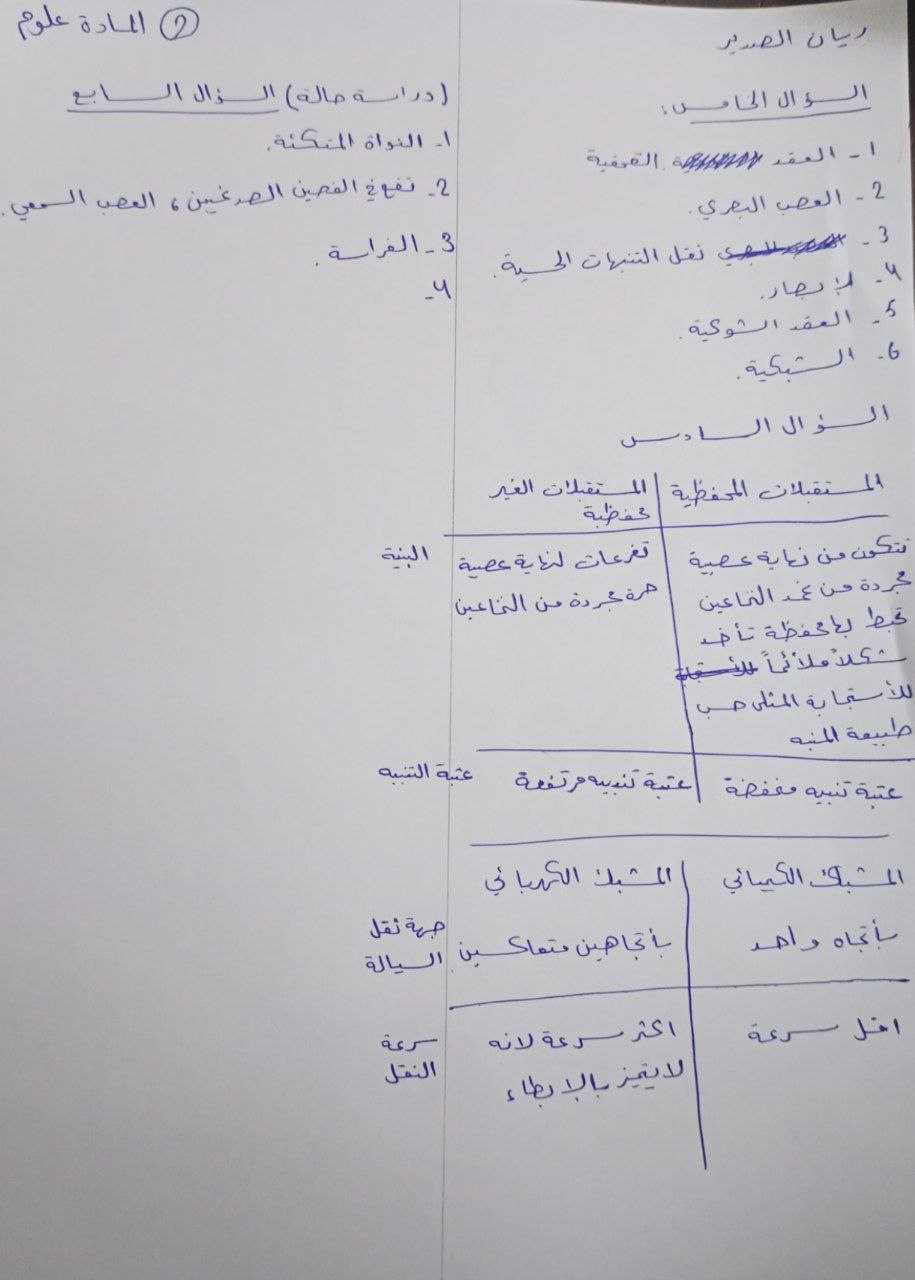 المادة علوم 2
ريان الصدير
السؤال الخامس:
1- العقد القحفية
2- العصب البصري.
3- نقل التنبهات الحسية.
4- للإبصار.
5- العقد الشوكية.
6- الشبكية.
السؤال السادس
المستقبلات المحفظية | المستقبلات الغير
محفظية
البنية
تتكون من نهاية عصبية
مجردة من غمد النخاعين
تحيط بها محفظة تأخذ
شكلاً ملائماً
للأستجابة المثلى حسب
طبيعة المنبه
تفرعات لنهاية عصبية
حرة مجردة من النخاعين
عتبة التنبيه
عتبة تنبيه منخفضة
عتبة تنبيه مرتفعة
المشبك الكيميائي | المشبك الكهربائي
جهة نقل
السيالة
بأتجاه واحد
بأتجاهين متعاكسين.
سرعة
النقل
اقل سرعة
اكثر سرعة لانه
لا يتميز بالإبطاء
(دراسة حالة) السؤال السابع
1- النواة المتكئة.
2- تقع في الفصين الصدغيين، العصب السمعي.
3- الفراسة.
4-